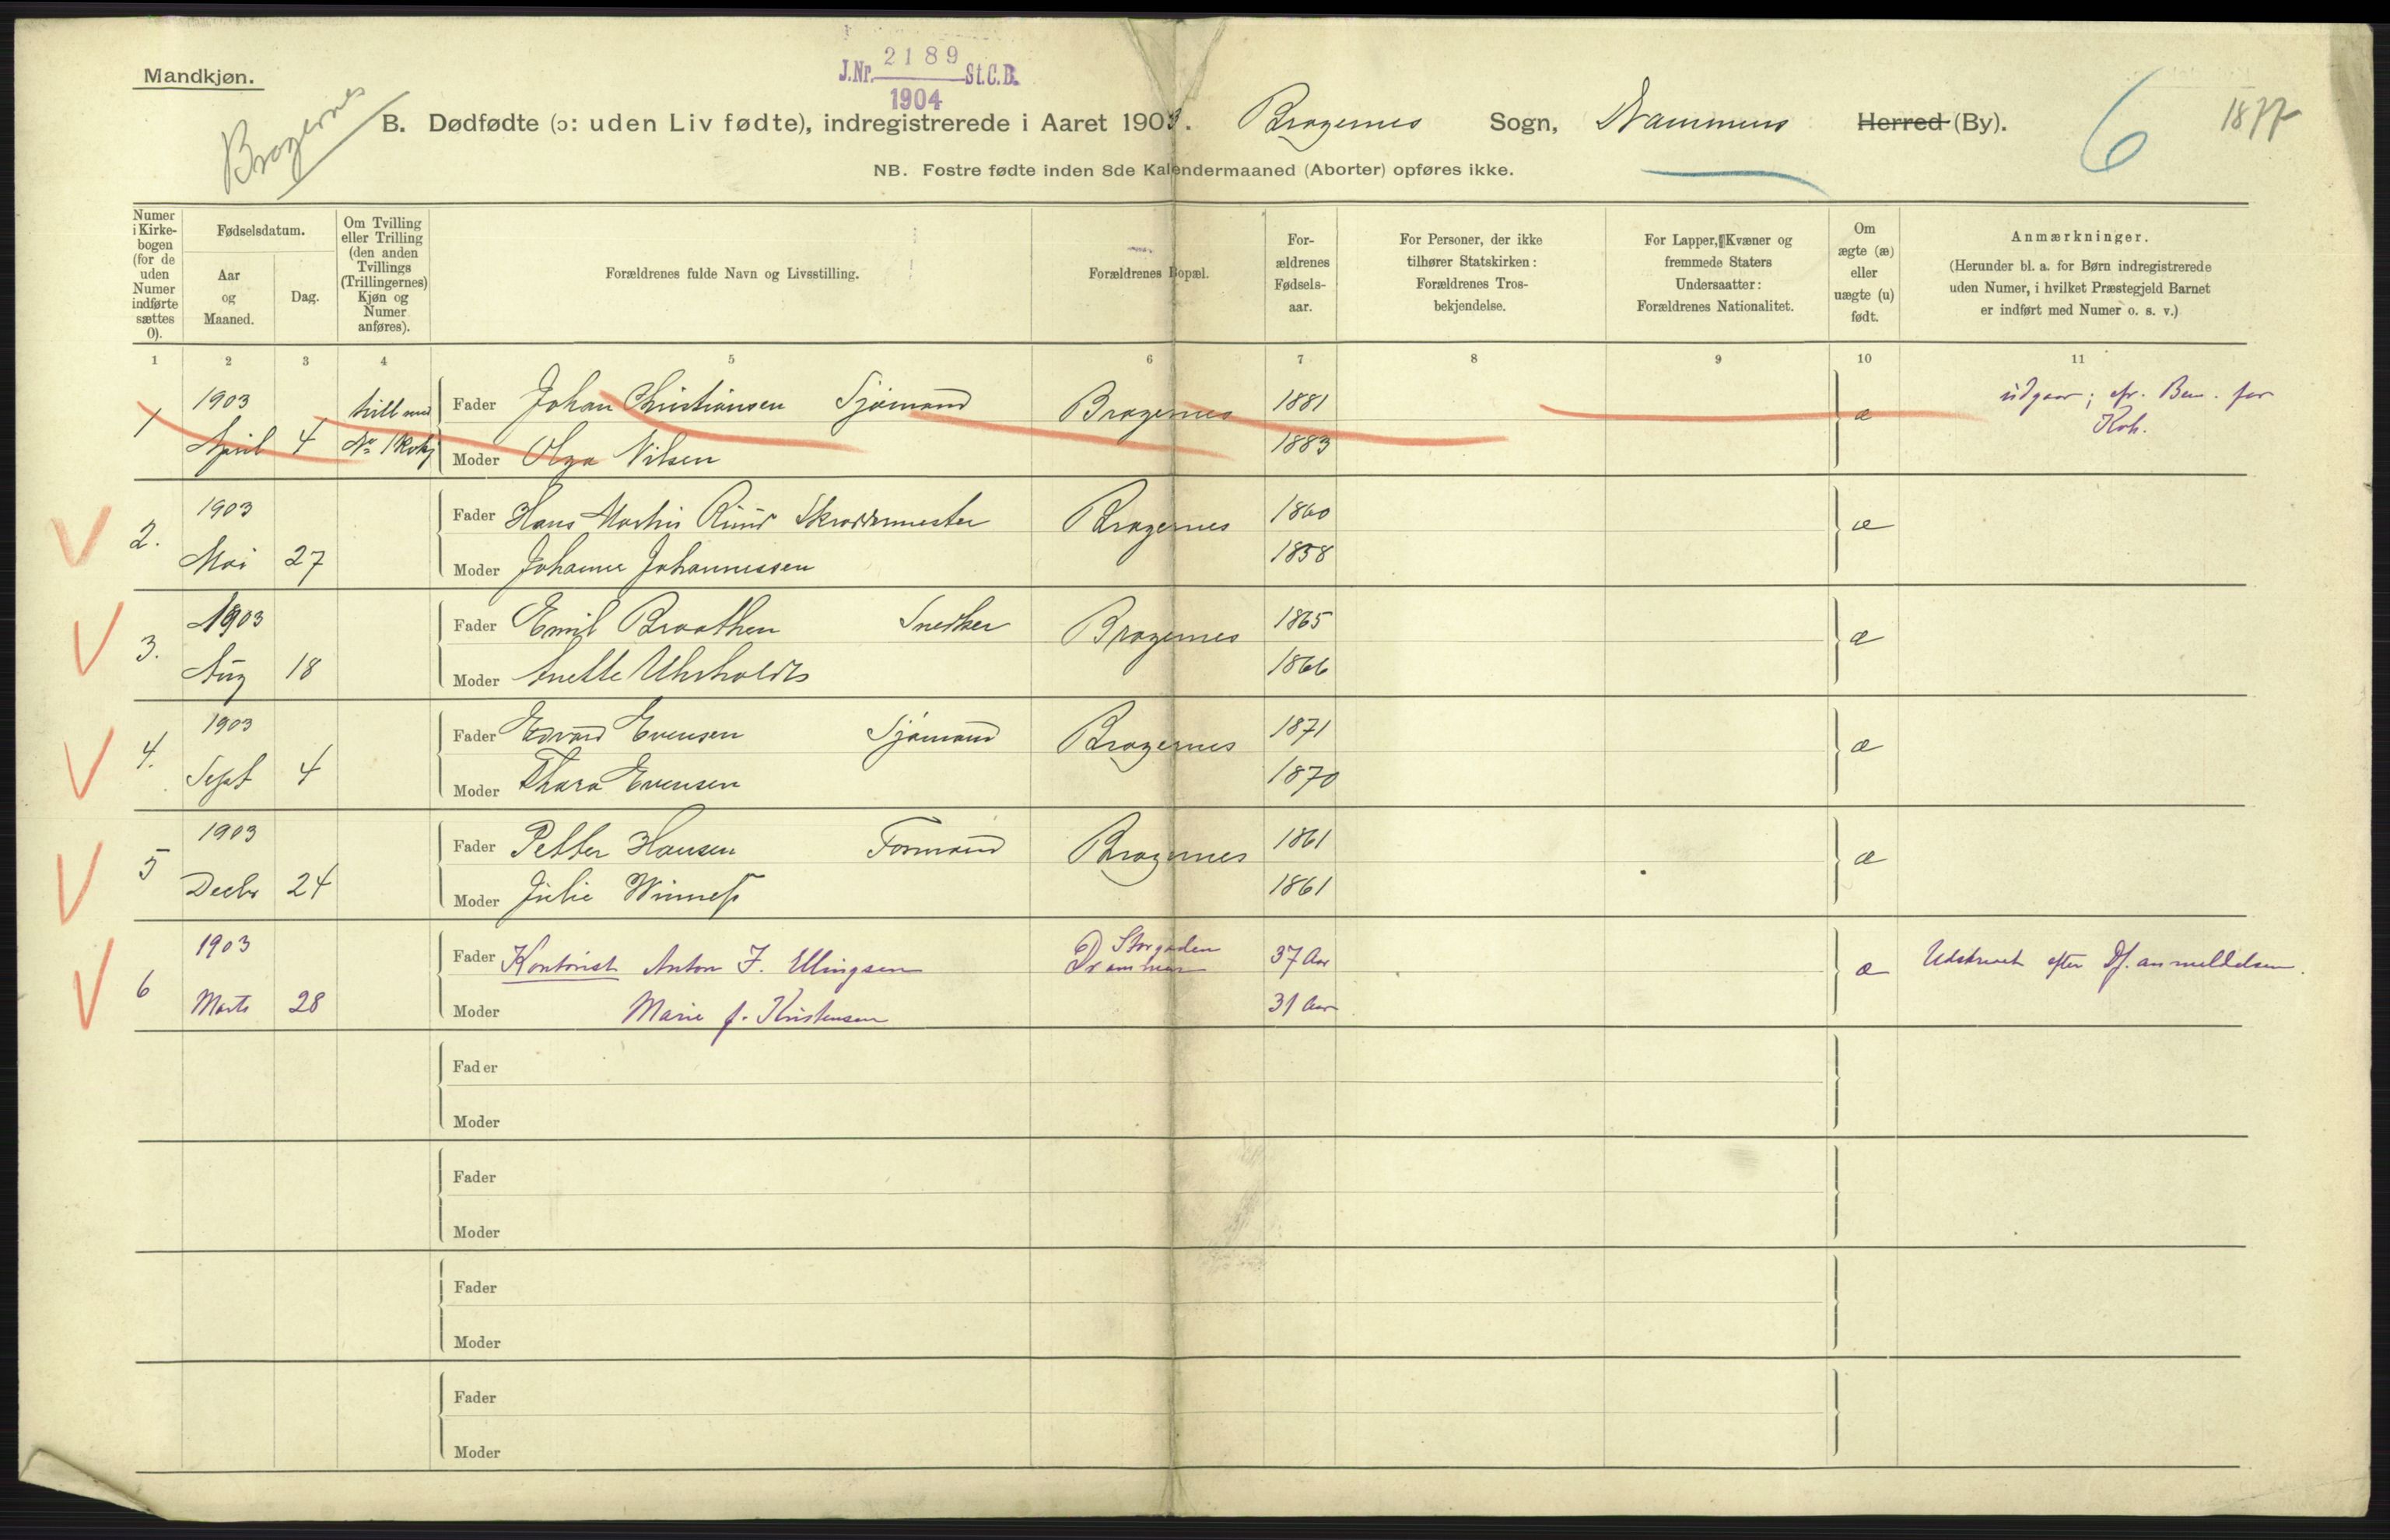 Mandkjøn.
J.Nr. 2189 St.C.B.
1904
Bragernes
B. Dødfødte (ɔ: uden Liv fødte), indregistrerede i Aaret 1903. Bragernes Sogn, Drammens Herred (By).
6
1877
NB. Fostre fødte inden 8de Kalendermaaned (Aborter) opføres ikke.
Numer i Kirke-bogen (for de uden Numer indførte sættes 0).
Fødselsdatum.
Aar og Maaned.
Dag.
Om Tvilling eller Trilling (den anden Tvillings (Trillingernes) Kjøn og Numer anføres).
Forældrenes fulde Navn og Livsstilling.
Forældrenes Bopæl.
For-ældrenes Fødsels-aar.
For Personer, der ikke tilhører Statskirken: Forældrenes Tros-bekjendelse.
For Lapper, Kvæner og fremmede Staters Undersaatter: Forældrenes Nationalitet.
Om ægte (æ) eller uægte (u) født.
Anmærkninger.
(Herunder bl. a. for Børn indregistrerede uden Numer, i hvilket Præstegjeld Barnet er indført med Numer o. s. v.)
1 2 3 4 5 6 7 8 9 10 11
1 1903 Fader Johan Christiansen Sjømand Bragernes 1881 æ udgaar; cfr. Bem. for
April 4 No 1 Moder Olga Nilsen 1883 Kvk.
2. 1903 Fader Hans Martin Ruud Skræddermester Bragernes 1860 æ
Mai 27 Moder Johanne Johannessen 1858
3. 1903 Fader Emil Braathen Snedker Bragernes 1865 æ
Aug 18 Moder Anette 1866
4. 1903 Fader Edvard Evensen Sjømand Bragernes 1871 æ
Sept 4 Moder Thora Evensen 1870
5 1903 Fader Petter Hansen Formand Bragernes 1861 æ
Decbr 24 Moder Julie Winness 1861
6 1903 Fader Kontorist Anton F. Ellingsen Storgaden Drammen 37 Aar æ Udskrevet efter Df. anmeldelsen.
Marts 28 Moder Marie f. Kristensen 31 Aar
Fader
Moder
Fader
Moder
Fader
Moder
Fader
Moder